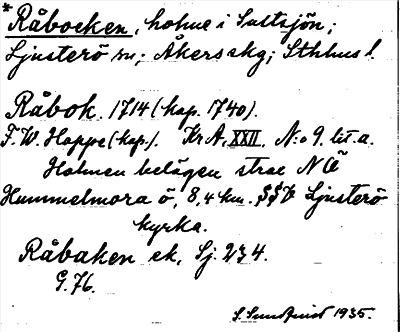 * Råbocken, holme i Saltsjön;
Ljusterö sn; Åkers skg; Sthlms l.
Råbok. 1714 (kop. 1740).
F. W. Hoppe (kop.). Kr A, XXII, N:o 9. lit. a.
Holmen belägen strax NÖ
Hummelmora ö, 8,4 km. SSV Ljusterö
kyrka.
Råbaken ek, Sj. 234.
G. 76.
S. Sundqvist 1935.